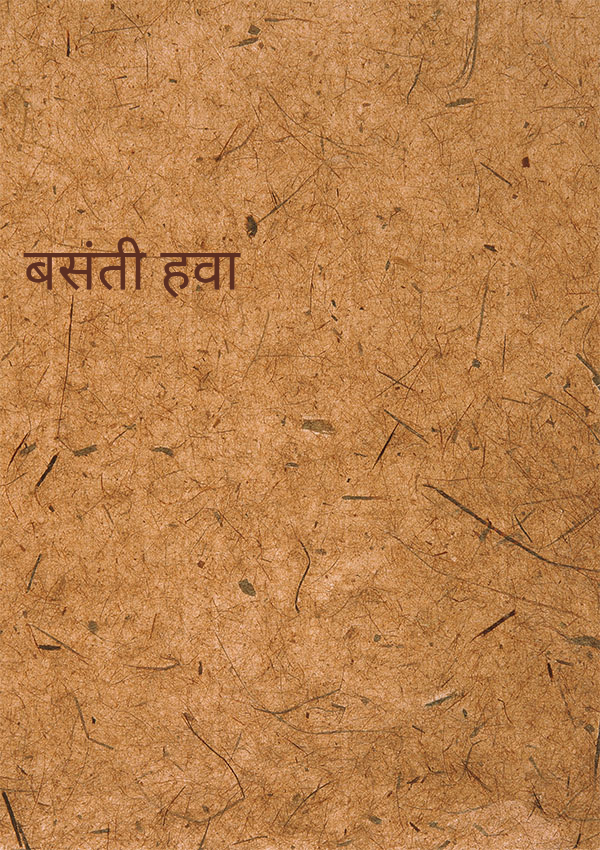 बसंती हवा